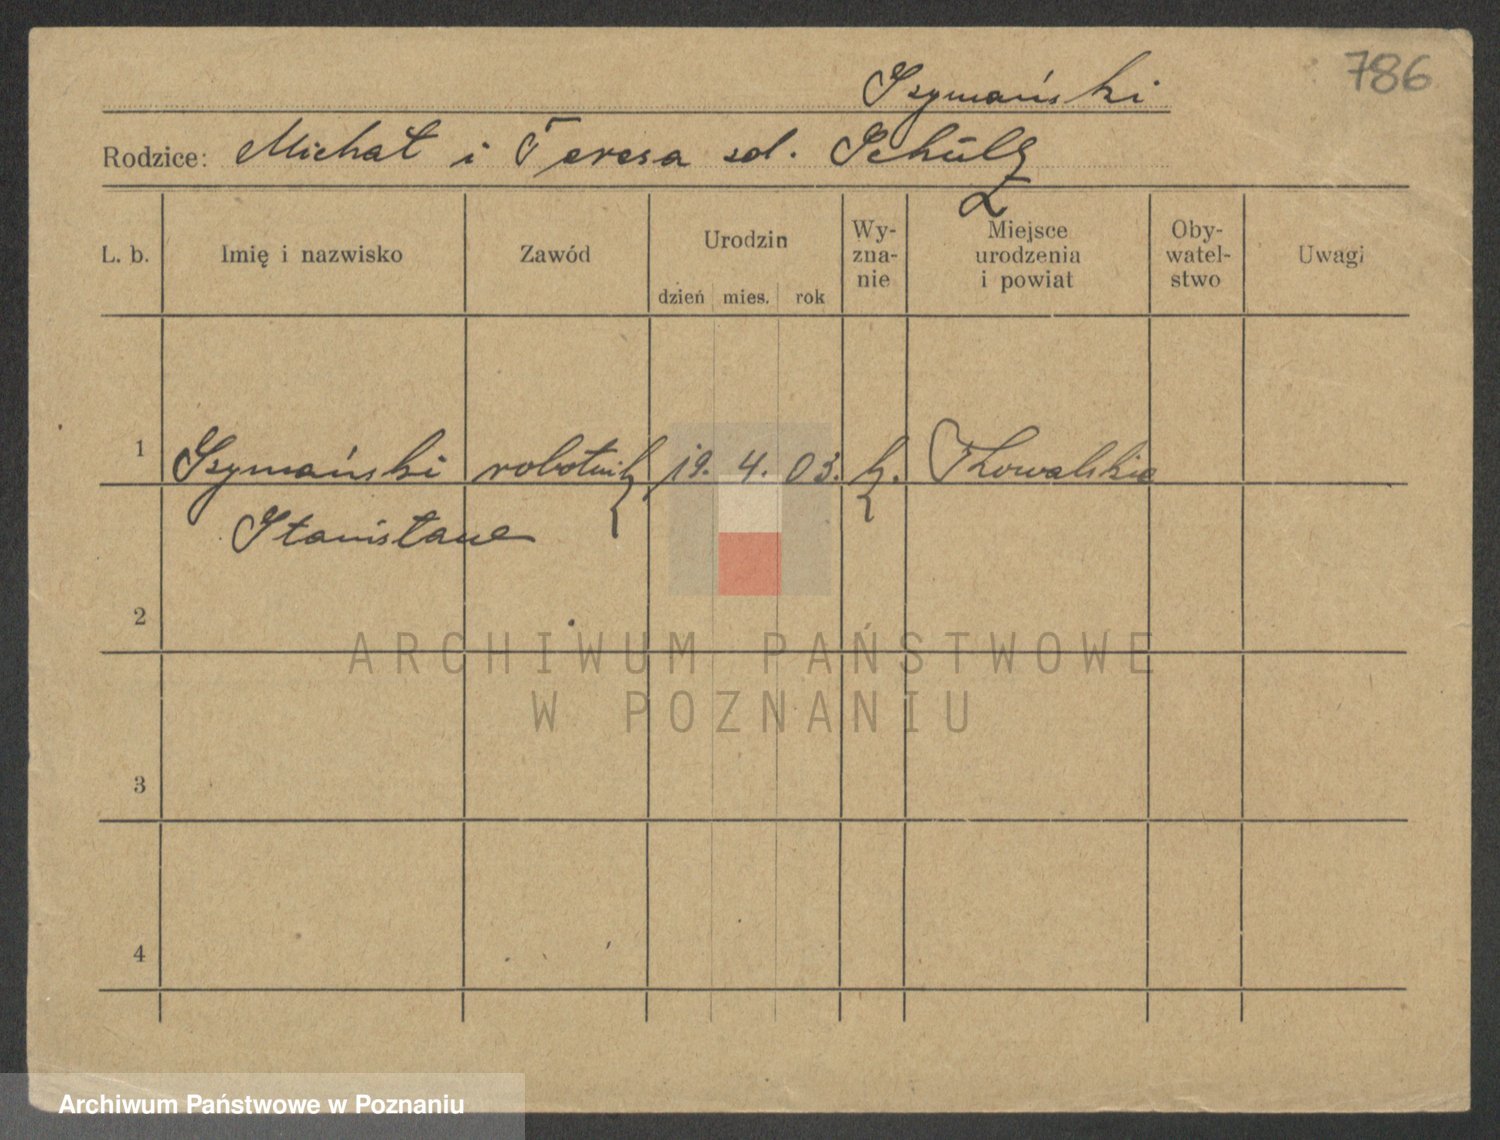 786
Szymański
Rodzice: Michał i Teresa zd. Schülz
L. b. Imię i nazwisko Zawód Urodzin dzień mies. rok Wy-zna-nie Miejsce urodzenia i powiat Oby-watel-stwo Uwagi
1 Szymański robotnik 19. 4. 03. k.
Stanisław
2
3
4
ARCHIWUM PAŃSTWOWE
W POZNANIU
Archiwum Państwowe w Poznaniu